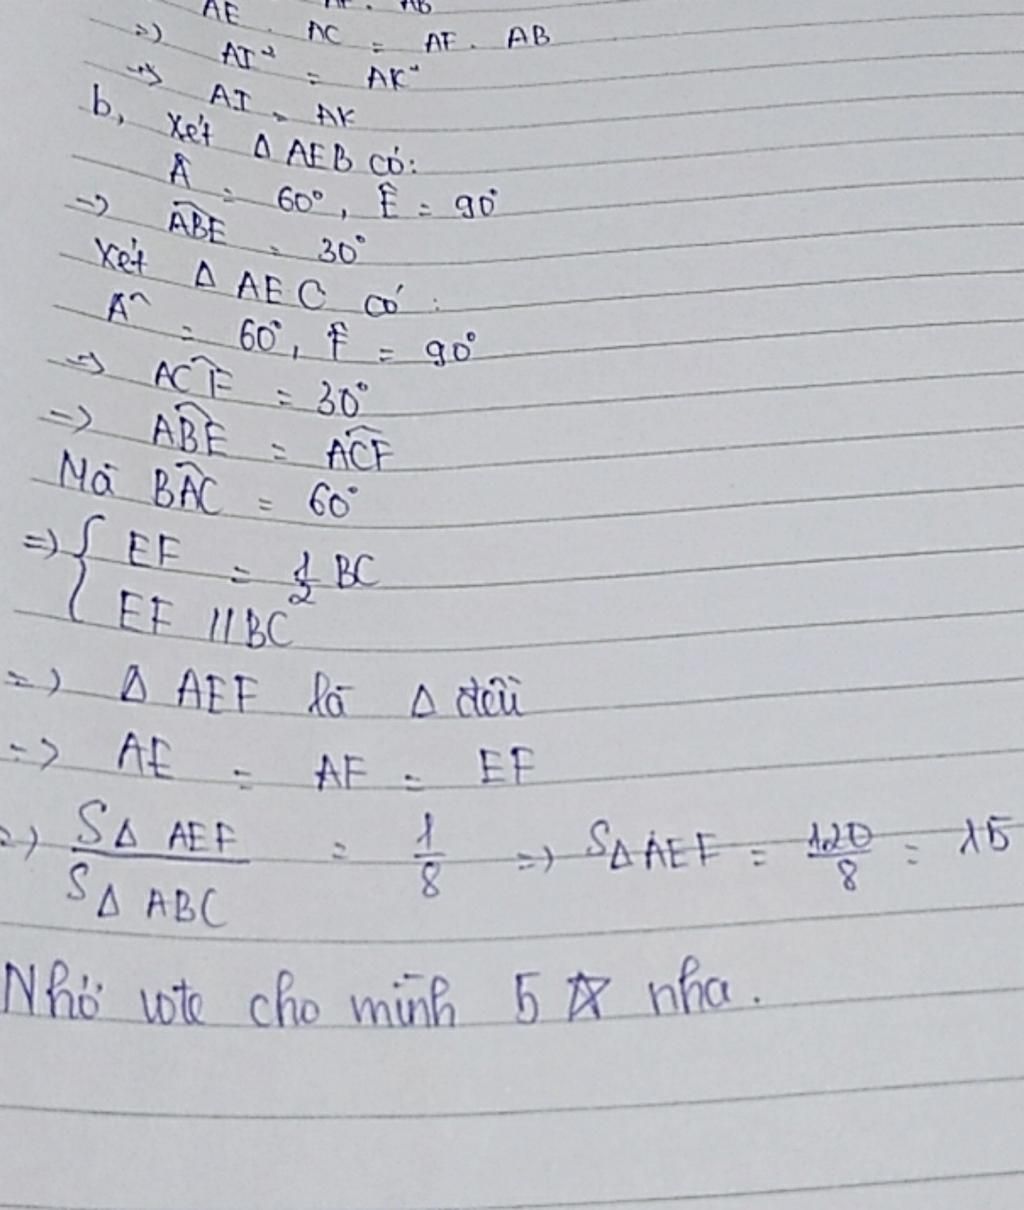 AE . AC = AF . AB
=) AI² = AK²
=> AI = AK
b, Xét Δ AEB có:
Â = 60°, Ê = 90°
=> ABE = 30°
Xét Δ AEC có :
A^ = 60°, F̂ = 90°
=> ACF = 30°
=> ABE = ACF
Mà BAC = 60°
=> { EF = 1/2 BC
EF // BC
=> Δ AEF là Δ đều
=> AE = AF = EF
=> SΔ AEF / SΔ ABC = 1/8 => SΔ AEF = 120/8 = 15
Nhớ vote cho mình 5 ☆ nha.